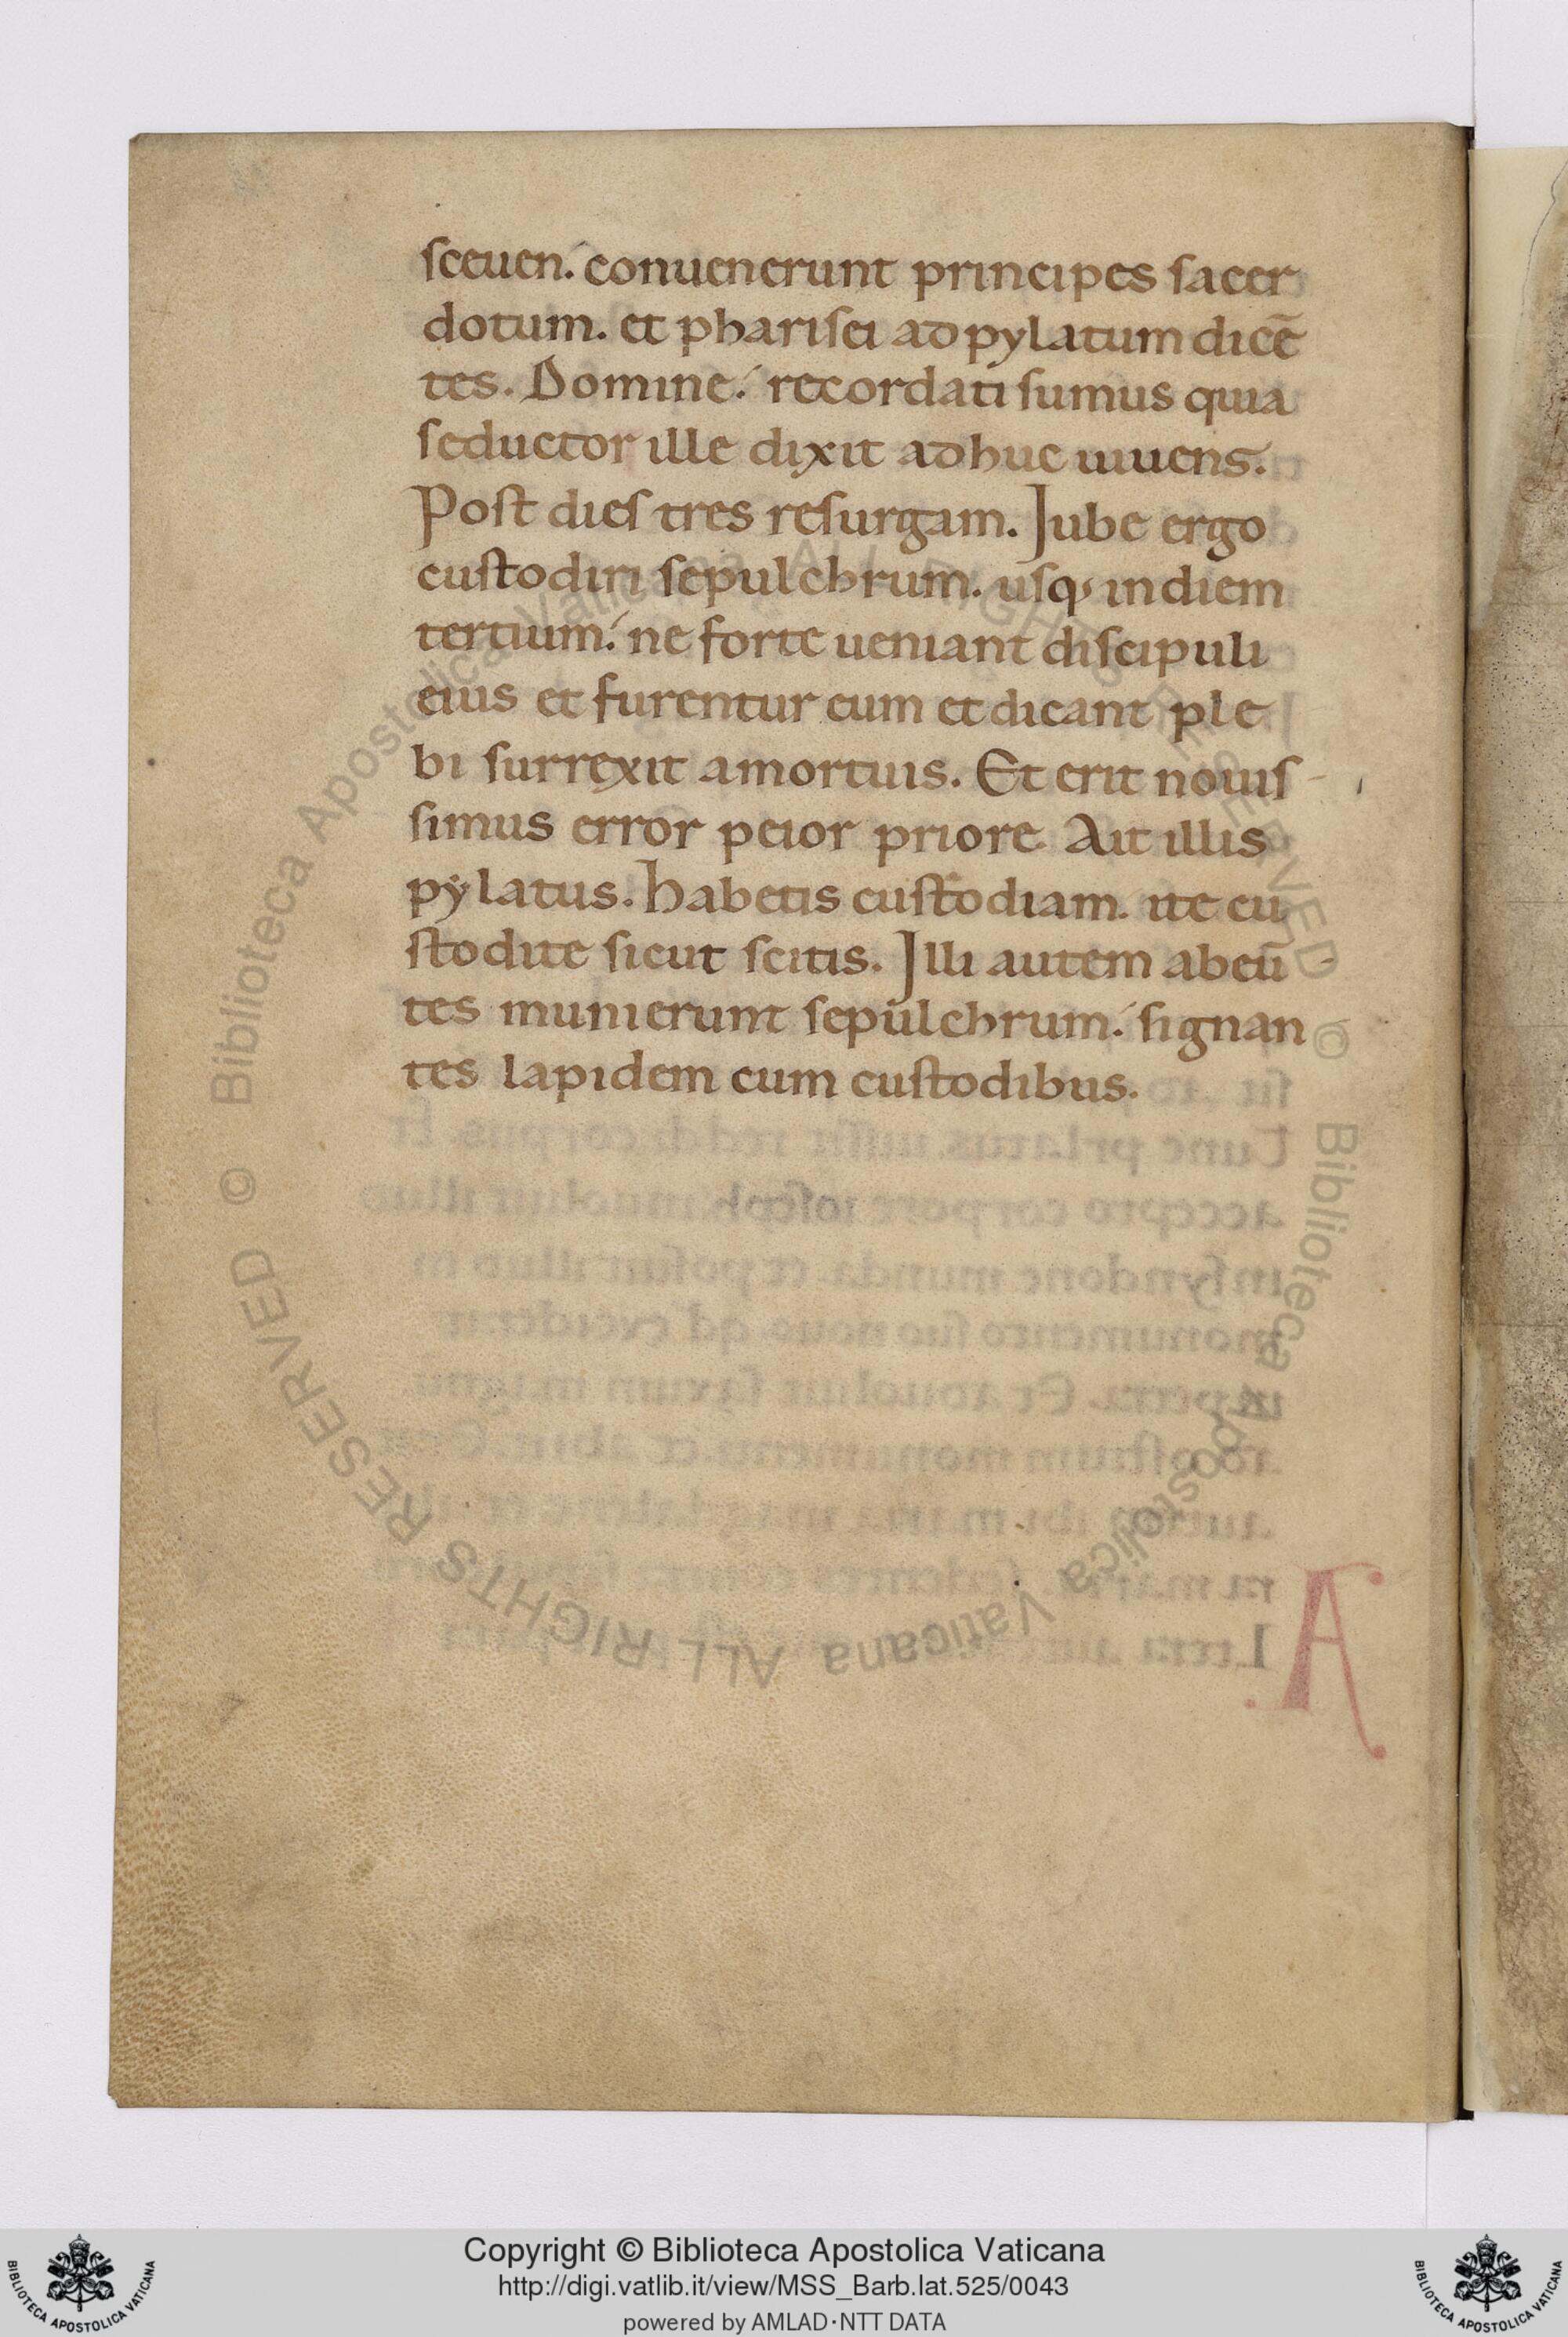 sceuen. conuenerunt principes sacer
dotum. et pharisei ad pylatum dicē
tes. Domine. recordati sumus quia
seductor ille dixit adhuc uiuens.
Post dies tres resurgam. Iube ergo
custodiri sepulchrum. usq; in diem
tertium. ne forte ueniant discipuli
eius et furentur eum et dicant ple
bi surrexit amortuis. Et erit nouis
simus error peior priore. Ait illis
pylatus. habetis custodiam. ite cu
stodite sicut scitis. Illi autem abeū
tes munierunt sepulchrum. signan
tes lapidem cum custodibus.
A
Biblioteca Apostolica Vaticana ALL RIGHTS RESERVED ©
Biblioteca Apostolica Vaticana ALL RIGHTS RESERVED ©
Copyright © Biblioteca Apostolica Vaticana
http://digi.vatlib.it/view/MSS_Barb.lat.525/0043
powered by AMLAD·NTT DATA
BIBLIOTECA APOSTOLICA VATICANA
BIBLIOTECA APOSTOLICA VATICANA